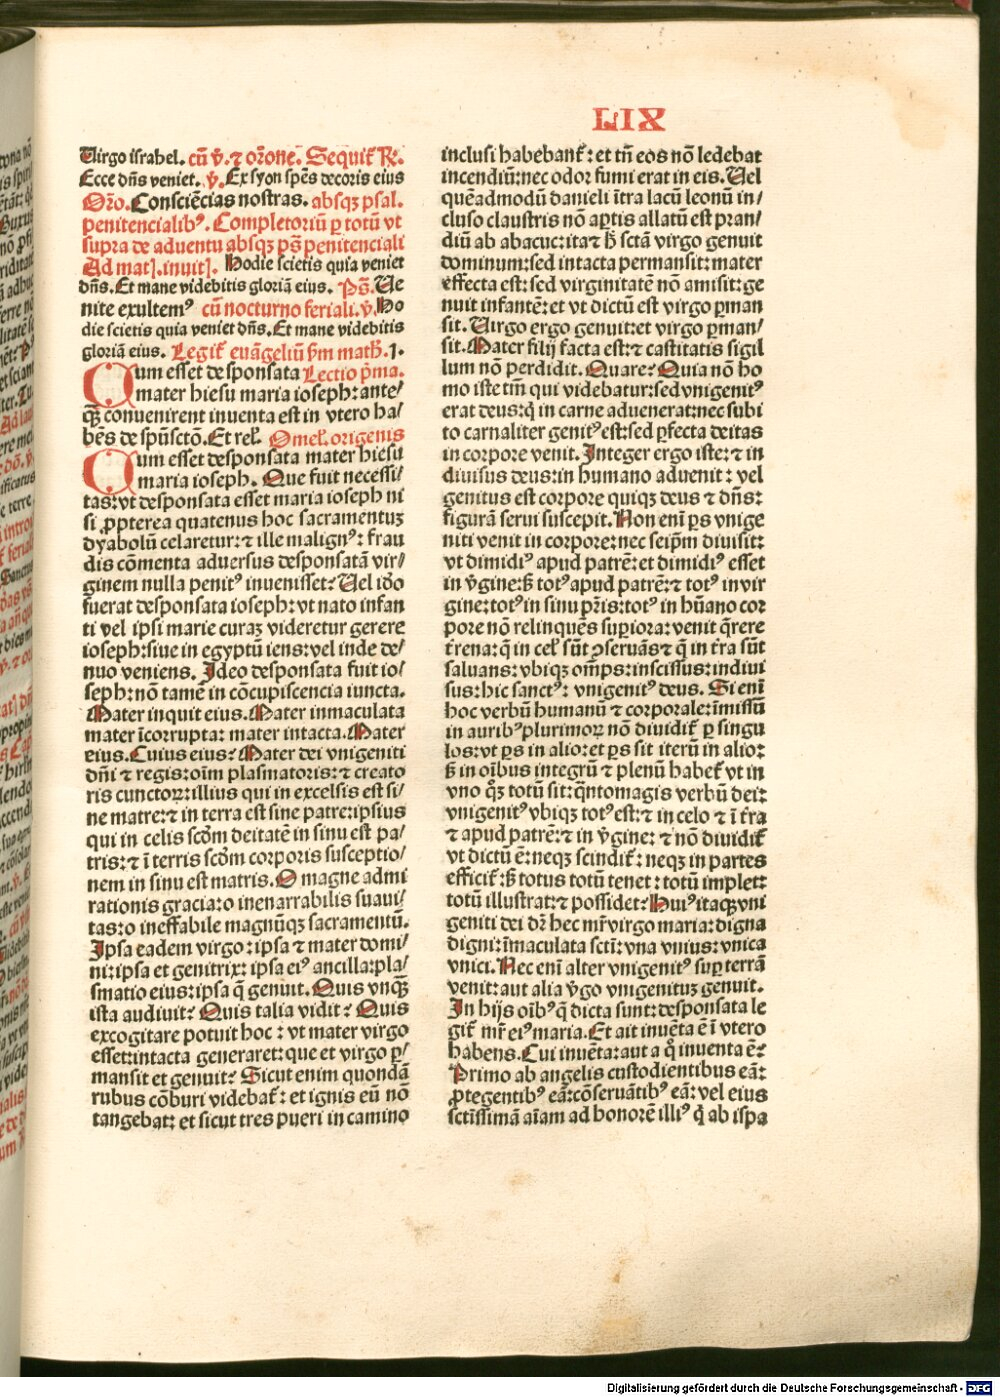 LIX
Virgo israhel. cū v̄. ⁊ or̄one. Sequit᷑ R.
Ecce dn̄s veniet. v̄. Ex syon spēs decoris eius
Or̄o. Consciēcias nostras. absqꝫ psal.
penitencialibꝰ. Completoriū ꝑ totū vt
supra de aduentu absqꝫ ps̄ penitenciali
Ad mat]. inuit]. Hodie scietis quia veniet
dn̄s. Et mane videbitis gloriā eius. Ps̄. Ue
nite exultemꝰ cū nocturno feriali. v̄. Ho
die scietis quia veniet dn̄s. Et mane videbitis
gloriā eius. Legit᷑ euāgeliū ẜm math̄. 1.
Cum esset desponsata Lectio p̄ma.
mater hiesu maria ioseph: ante/
qꝫ̄ conuenirent inuenta est in vtero ha/
bēs de spūsctō. Et rel̄. Omel̄. origenis
Cum esset desponsata mater hiesu
maria ioseph. Que fuit necessi/
tas: vt desponsata esset maria ioseph ni
si ꝓpterea quatenus hoc sacramentuꝫ
dyabolū celaretur: ⁊ ille malignꝰ: frau
dis cōmenta aduersus desponsatā vir/
ginem nulla penitꝰ inuenisset: Uel iδo
fuerat desponsata ioseph: vt nato infan
ti vel ipsi marie curaꝫ videretur gerere
ioseph: siue in egyptū iens: vel inde de/
nuo veniens. Ideo desponsata fuit io/
seph: nō tamē in cōcupiscencia iuncta.
Mater inquit eius. Mater inmaculata
mater īcorrupta: mater intacta. Mater
eius. Cuius eius: Mater dei vnigeniti
dn̄i ⁊ regis: oīm plasmatoris: ⁊ creato
ris cunctoꝝ: illius qui in excelsis est si/
ne matre: ⁊ in terra est sine patre: ipsius
qui in celis scδm deitatē in sinu est pa/
tris: ⁊ ī terris scδm corporis susceptio/
nem in sinu est matris. O magne admi
rationis gracia: o inenarrabilis suaui/
tas: o ineffabile magnūqꝫ sacramentū.
Ipsa eadem virgo: ipsa ⁊ mater domi/
ni: ipsa et genitrix: ipsa eiꝰ ancilla: pla/
smatio eius: ipsa q̄ genuit. Quis vnqꝫ̄
ista audiuit: Quis talia vidit: Quis
excogitare potuit hoc: vt mater virgo
esset: intacta generaret: que et virgo ꝑ/
mansit et genuit: Sicut enim quondā
rubus cōburi videbat᷑: et ignis eū nō
tangebat: et sicut tres pueri in camino
inclusi habebant᷑: et tn̄ eos nō ledebat
incendiū: nec odor fumi erat in eis. Uel
quēadmodū danieli ītra lacū leonū in/
cluso claustris nō aptis allatū est pran/
diū ab abacuc: ita ⁊ h̄ sctā virgo genuit
dominum: sed intacta permansit: mater
effecta est: sed virginitatē nō amisit: ge
nuit infantē: et vt dictū est virgo ꝑman
sit. Uirgo ergo genuit: et virgo ꝑman/
sit. Mater filij facta est: ⁊ castitatis sigil
lum nō perdidit. Quare: Quia nō ho
mo iste tm̄ qui videbatur: sed vnigenitꝰ
erat deus: q̇ in carne aduenerat: nec subi
to carnaliter genitꝰ est: sed ꝑfecta deitas
in corpore venit. Integer ergo iste: ⁊ in
diuisus deus: in humano aduenit: vel
genitus est corpore quiqꝫ deus ⁊ dn̄s:
figurā serui suscepit. Non eni ps̄ vnige
niti venit in corpore: nec seip̄m diuisit:
vt dimidiꝰ apud patrē: et dimidiꝰ esset
in v̄gine: ẜ totꝰ apud patrē: ⁊ totꝰ in vir
gine: totꝰ in sinu pr̄is: totꝰ in hūano cor
pore nō relinquēs supiora: venit q̄rere
t̄rena: q̄ in cel̄ sūt ꝯseruās ⁊ q̄ in t̄ra sūt
saluans: vbiqꝫ om̄ps: inscissus: indiui
sus: hic sanctꝰ: vnigenitꝰ deus. Si enī
hoc verbū humanū ⁊ corporale: īmissū
in auribꝰ plurimoꝝ nō diuidit᷑ ꝑ singu
los: vt ps̄ in alio: et ps̄ sit iterū in alio:
ẜ in oībus integrū ⁊ plenū habet᷑ vt in
vno qꝫ totū sit: q̄ntomagis verbū dei:
vnigenitꝰ vbiqꝫ totꝰ est: ⁊ in celo ⁊ ī t̄ra
⁊ apud patrē: ⁊ in v̄gine: ⁊ nō diuidit᷑
vt dictū ē: neqꝫ scindit᷑: neqꝫ in partes
efficit᷑: ẜ totus totū tenet: totū implet:
totū illustrat: ⁊ possidet: Huiꝰ itaqꝫ vni
geniti dei dr̄ hec mr̄ virgo maria: digna
digni: īmaculata scti: vna vnius: vnica
vnici. Nec eni alter vnigenitꝰ suꝑ terrā
venit: aut alia v̄go vnigenituꝫ genuit.
In hijs oībꝰ q̄ dicta sunt: desponsata le
git᷑ mr̄ eiꝰ maria. Et ait inuēta ē ī vtero
habens. Cui inuēta: aut a q̊ inuenta ē:
Primo ab angelis custodientibus eā:
ꝓtegentibꝰ eā: cōseruātibꝰ eā: vel eius
sctissimā aīam ad honorē illiꝰ q̇ ab ispa